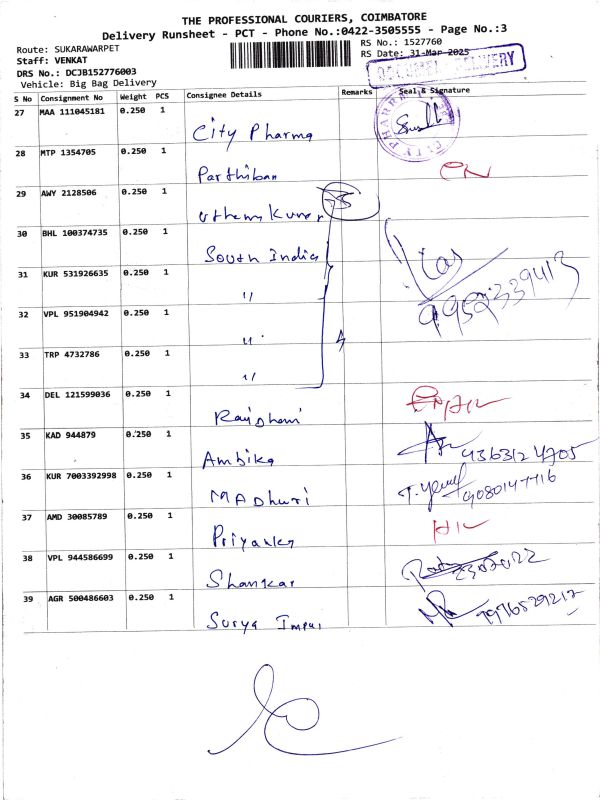 THE PROFESSIONAL COURIERS, COIMBATORE
Delivery Runsheet - PCT - Phone No.:0422-3505555 - Page No.:3
Route: SUKARAWARPET
RS No.: 1527760
Staff: VENKAT
RS Date: 31-Mar-2025
DRS No.: DCJB152776003
Vehicle: Big Bag Delivery
DELIVERY
S No Consignment No Weight PCS Consignee Details Remarks Seal & Signature
27 MAA 111045181 0.250 1 City Pharma
28 MTP 1354705 0.250 1 Parthiban
29 AWY 2128506 0.250 1
30 BHL 100374735 0.250 1 South India
31 KUR 531926635 0.250 1 〃
32 VPL 951904942 0.250 1 〃
33 TRP 4732786 0.250 1 〃
9952339413
34 DEL 121599036 0.250 1
35 KAD 944879 0.250 1 Ambika
36 KUR 7003392998 0.250 1 MADhuri
37 AMD 30085789 0.250 1 Priyanka
38 VPL 944586699 0.250 1 Shankar
39 AGR 500486603 0.250 1 Surya